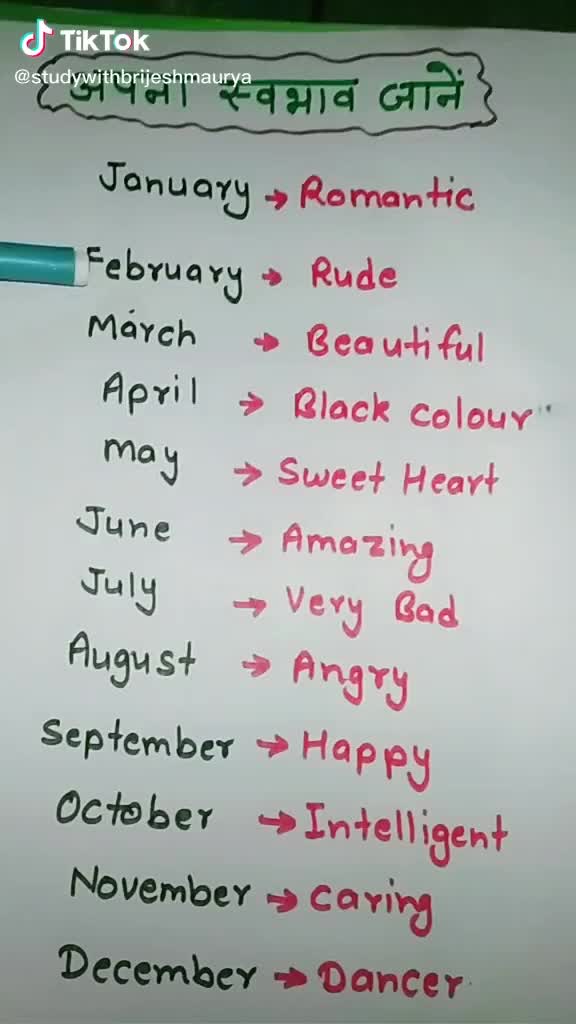 TikTok
@studywithbrijeshmaurya
अपना स्वभाव जानें
January → Romantic
February → Rude
March → Beautiful
April → Black colour
May → Sweet Heart
June → Amazing
July → Very Bad
August → Angry
September → Happy
October → Intelligent
November → Caring
December → Dancer